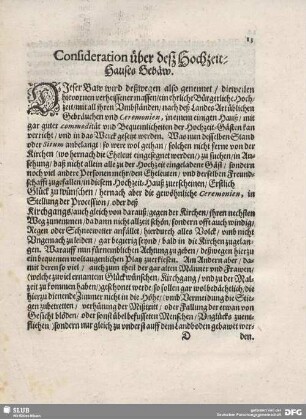 13
Consideration über desz Hochzeit-
Hauses Gebäw.
DIeser Baw wird deßwegen also genennet / dieweilen
hievornen verheissener massen / ein ehrliche Bürgerliche Hoch-
zeit / mit all ihren Umbständen / nach deß Landes Art / üblichen
Gebräuchen und Ceremonien, in einem eingen Hauß / mit
gar guter commoditát und Bequemlichkeiten der Hochzeit-Gästen kan
verricht / und in das Werck gesetzt werden. Was nun desselben Stand
oder Situm anbelangt / so were wol gethan / solchen nicht ferne von der
Kirchen / wo hernach die Eheleut eingesegnet werden / zu suchen / in An-
sehung / daß nicht allein alle zu der Hochzeit eingeladene Gäst / sondern
noch viel andere Personen mehr / den Eheleuten / und derselben Freund-
schafft zugefallen / in diesem Hochzeit-Hauß zu erscheinen / Erstlich
Glück zu wünschen / hernach aber die gewöhnliche Ceremonien, in
Stellung der Procession / oder deß
Kirchgangs / auch gleich von darauß / gegen der Kirchen / ihren nechsten
Weg zunemmen / da dann nicht allzeit schön / sondern offt auch windig /
Regen oder Schneewetter anfället / hierdurch alles Volck / und nicht
Ungemach zu leiden / gar begierig sevnd / bald in die Kirchen zugelan-
gen. Warauff nun fürnemblichen Achtung zugeben / deßwegen hierzu
ein bequemen wolgelegenlichen Platz zu erkiesen. Am Andern aber / da-
mit deren so viel / auch zum theil der gar alten Männer und Frawen /
(welche zu viel ernantem Glückwünschen / Kirchgang / und zu der Mal-
zeit zu kommen haben) geschonet werde / so sollen gar wolbedächtlich / die
hierzu dienende Zimmer nicht in die Höhe / (umb Vermeidung die Stie-
gen zubetretten / verhütung der Mißtritt / oder Fallung der etwan von
Gesicht blöden / oder sonst übel befußeten Menschen / Unglücks zuent-
fliehen /) sondern nur gleich zu underst auff dem Landboden gebawet wer-
D
den.
SLUB
Wir führen Wissen.
DFG